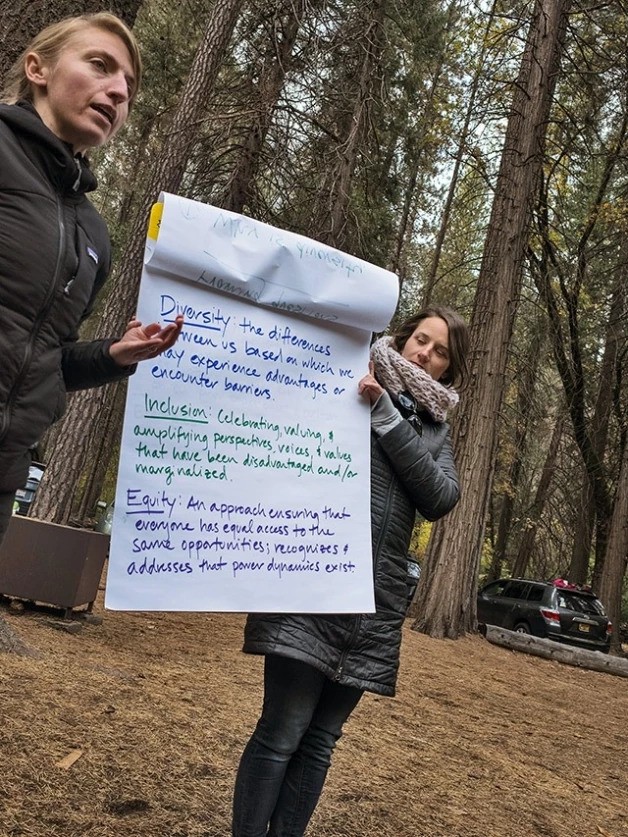 Diversity: the differences
between us based on which we
may experience advantages or
encounter barriers.
Inclusion: Celebrating, valuing, &
amplifying perspectives, voices, & values
that have been disadvantaged and/or
marginalized.
Equity: An approach ensuring that
everyone has equal access to the
same opportunities; recognizes &
addresses that power dynamics exist.